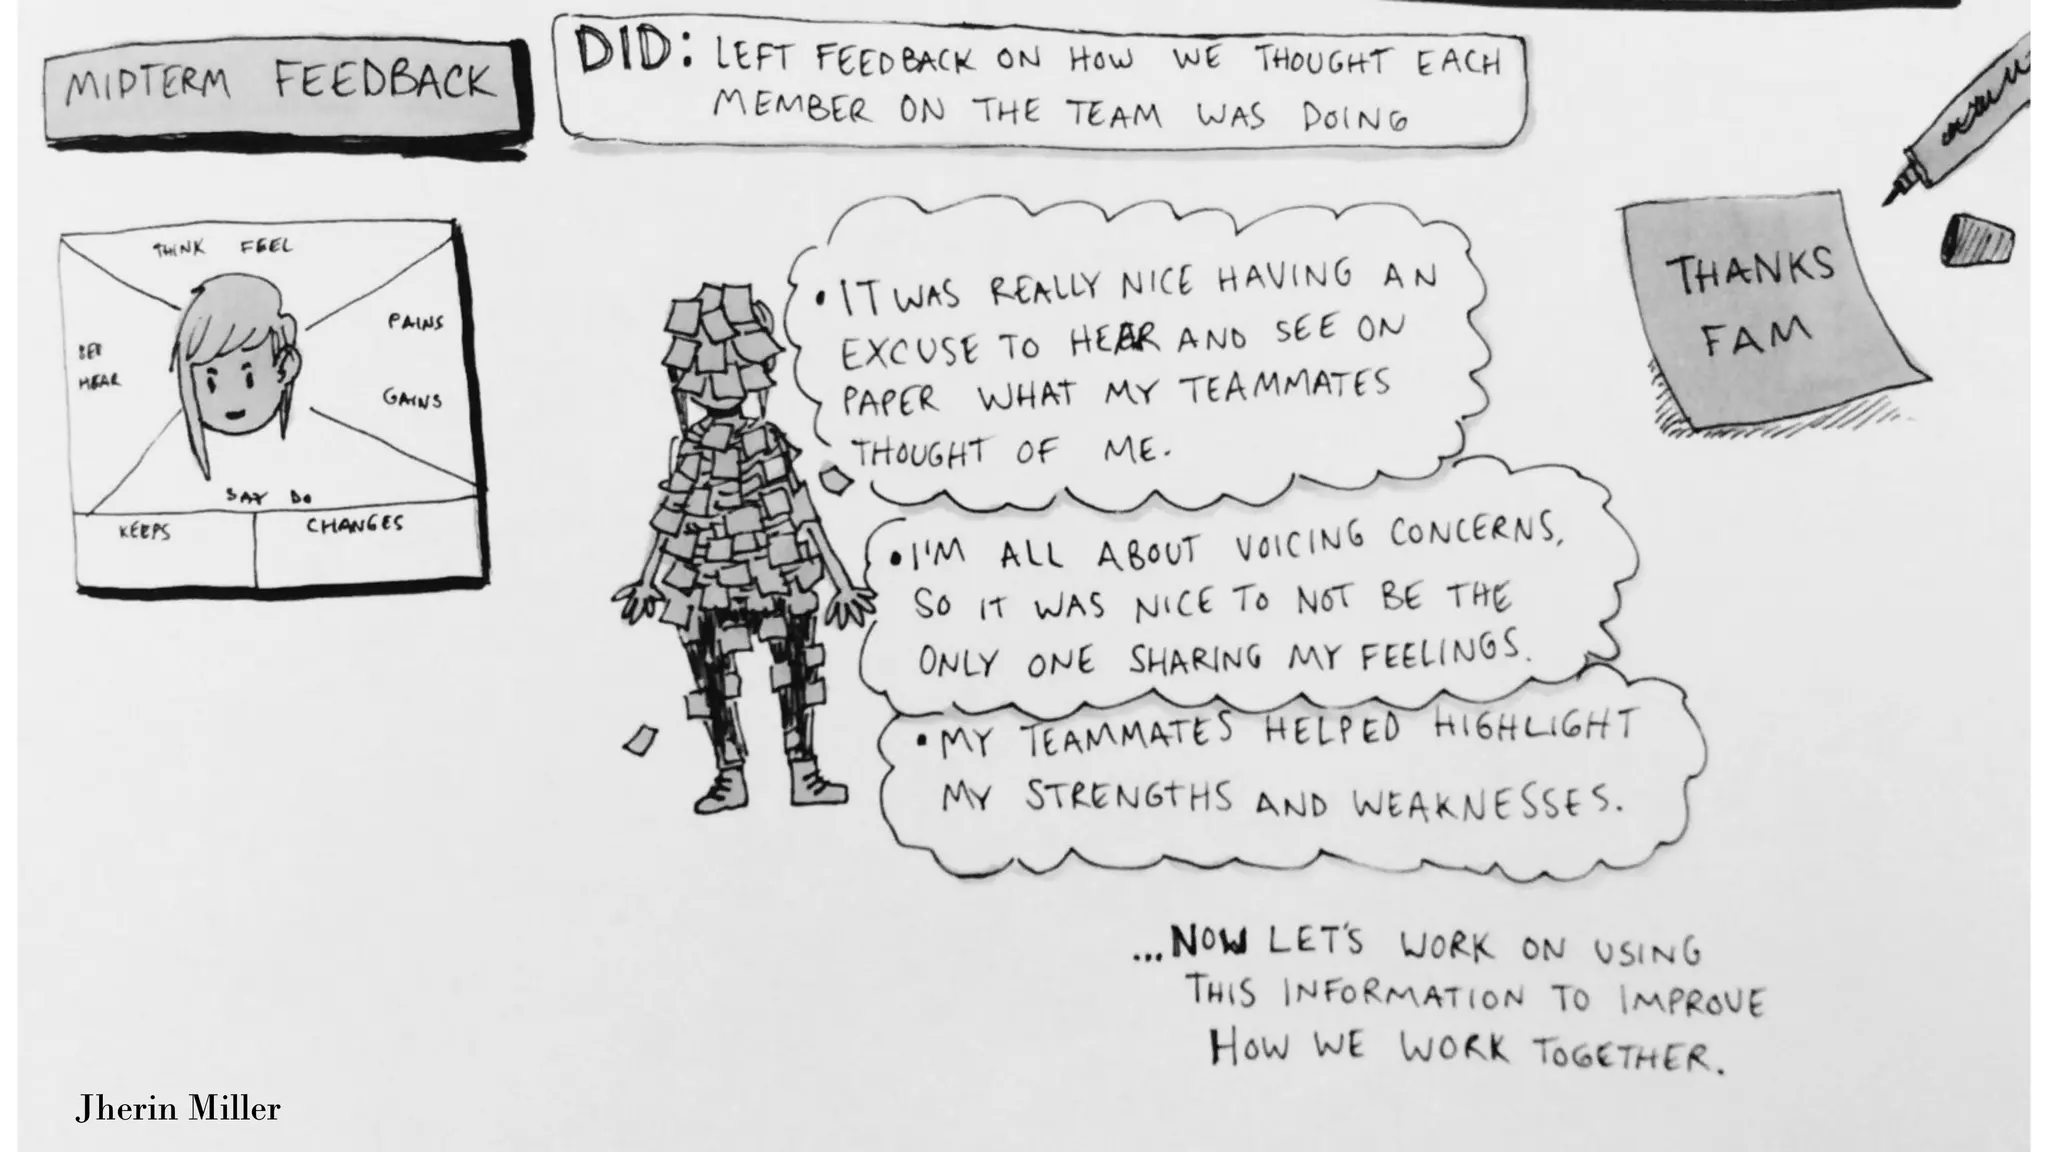 MIDTERM FEEDBACK
DID: LEFT FEEDBACK ON HOW WE THOUGHT EACH
MEMBER ON THE TEAM WAS DOING
THINK FEEL
SEE
HEAR
PAINS
GAINS
SAY DO
KEEPS
CHANGES
• IT WAS REALLY NICE HAVING AN
EXCUSE TO HEAR AND SEE ON
PAPER WHAT MY TEAMMATES
THOUGHT OF ME.
• I'M ALL ABOUT VOICING CONCERNS,
SO IT WAS NICE TO NOT BE THE
ONLY ONE SHARING MY FEELINGS.
• MY TEAMMATES HELPED HIGHLIGHT
MY STRENGTHS AND WEAKNESSES.
THANKS
FAM
...NOW LET'S WORK ON USING
THIS INFORMATION TO IMPROVE
HOW WE WORK TOGETHER.
Jherin Miller